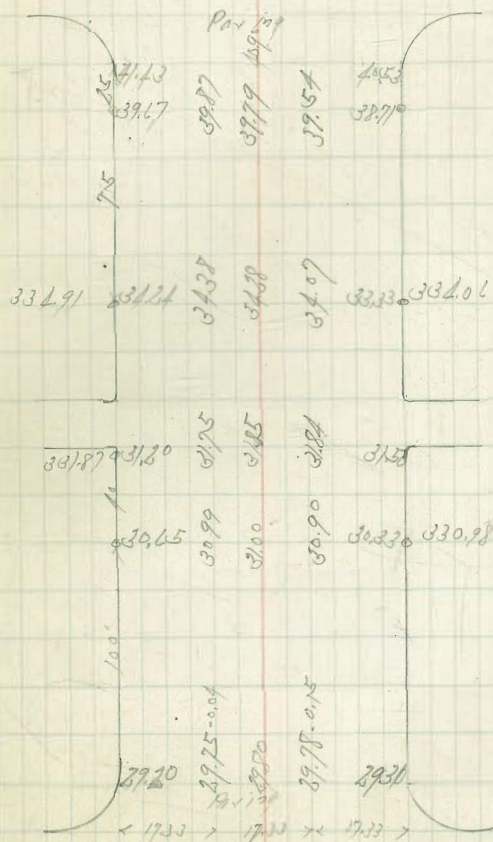 Paving
25 41.43 40.53
39.67 39.87 39.79 39.54 38.71
75
334.91 34.24 34.37 34.38 34.07 33.33 334.06
331.87 31.20 31.75 31.85 31.84 31.50
40
30.65 30.99 31.00 30.90 30.33 330.98
100'
29.20 29.75-0.04 29.80 29.78-0.15 29.30
Paving
17.33 17.33 17.33